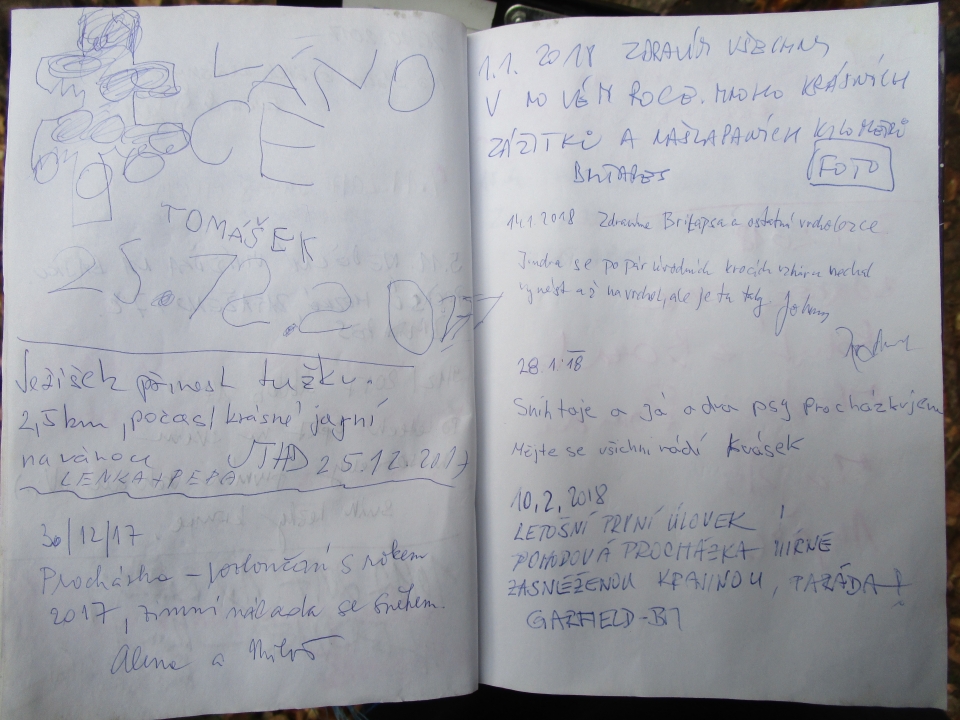 VÁNO
CE
TOMÁŠEK
25.12.2017
Ježíšek přinesl tužku.
2,5 km, počasí krásné jarní
na vánoce JTHD 25.12.2017
LENKA + PEPA
30/12/17
Procházka – s rokem
2017, zimní nálada se sněhem.
Alena a Miloš
1.1. 2018 ZDRAVÍM VŠECHNY
V NOVÉM ROCE. MNOHO KRÁSNÝCH
ZÁŽITKŮ A NAŠLAPANÝCH KILOMETRŮ
BRITAPES FOTO
14.1.2018 Zdravíme Britapsa a ostatní vrcholovce
Jindra se po pár úvodních krocích vzhůru nechal
vynést až na vrchol, ale je tu taky
28.1.18
Sníh taje a já a dva psy procházkujem
Mějte se všichni rádi Kvásek
10.2.2018
LETOŠNÍ PRVNÍ ÚLOVEK!
POHODOVÁ PROCHÁZKA MÍRNĚ
ZASNĚŽENOU KRAJINOU, PARÁDA!
GARFIELD-BM